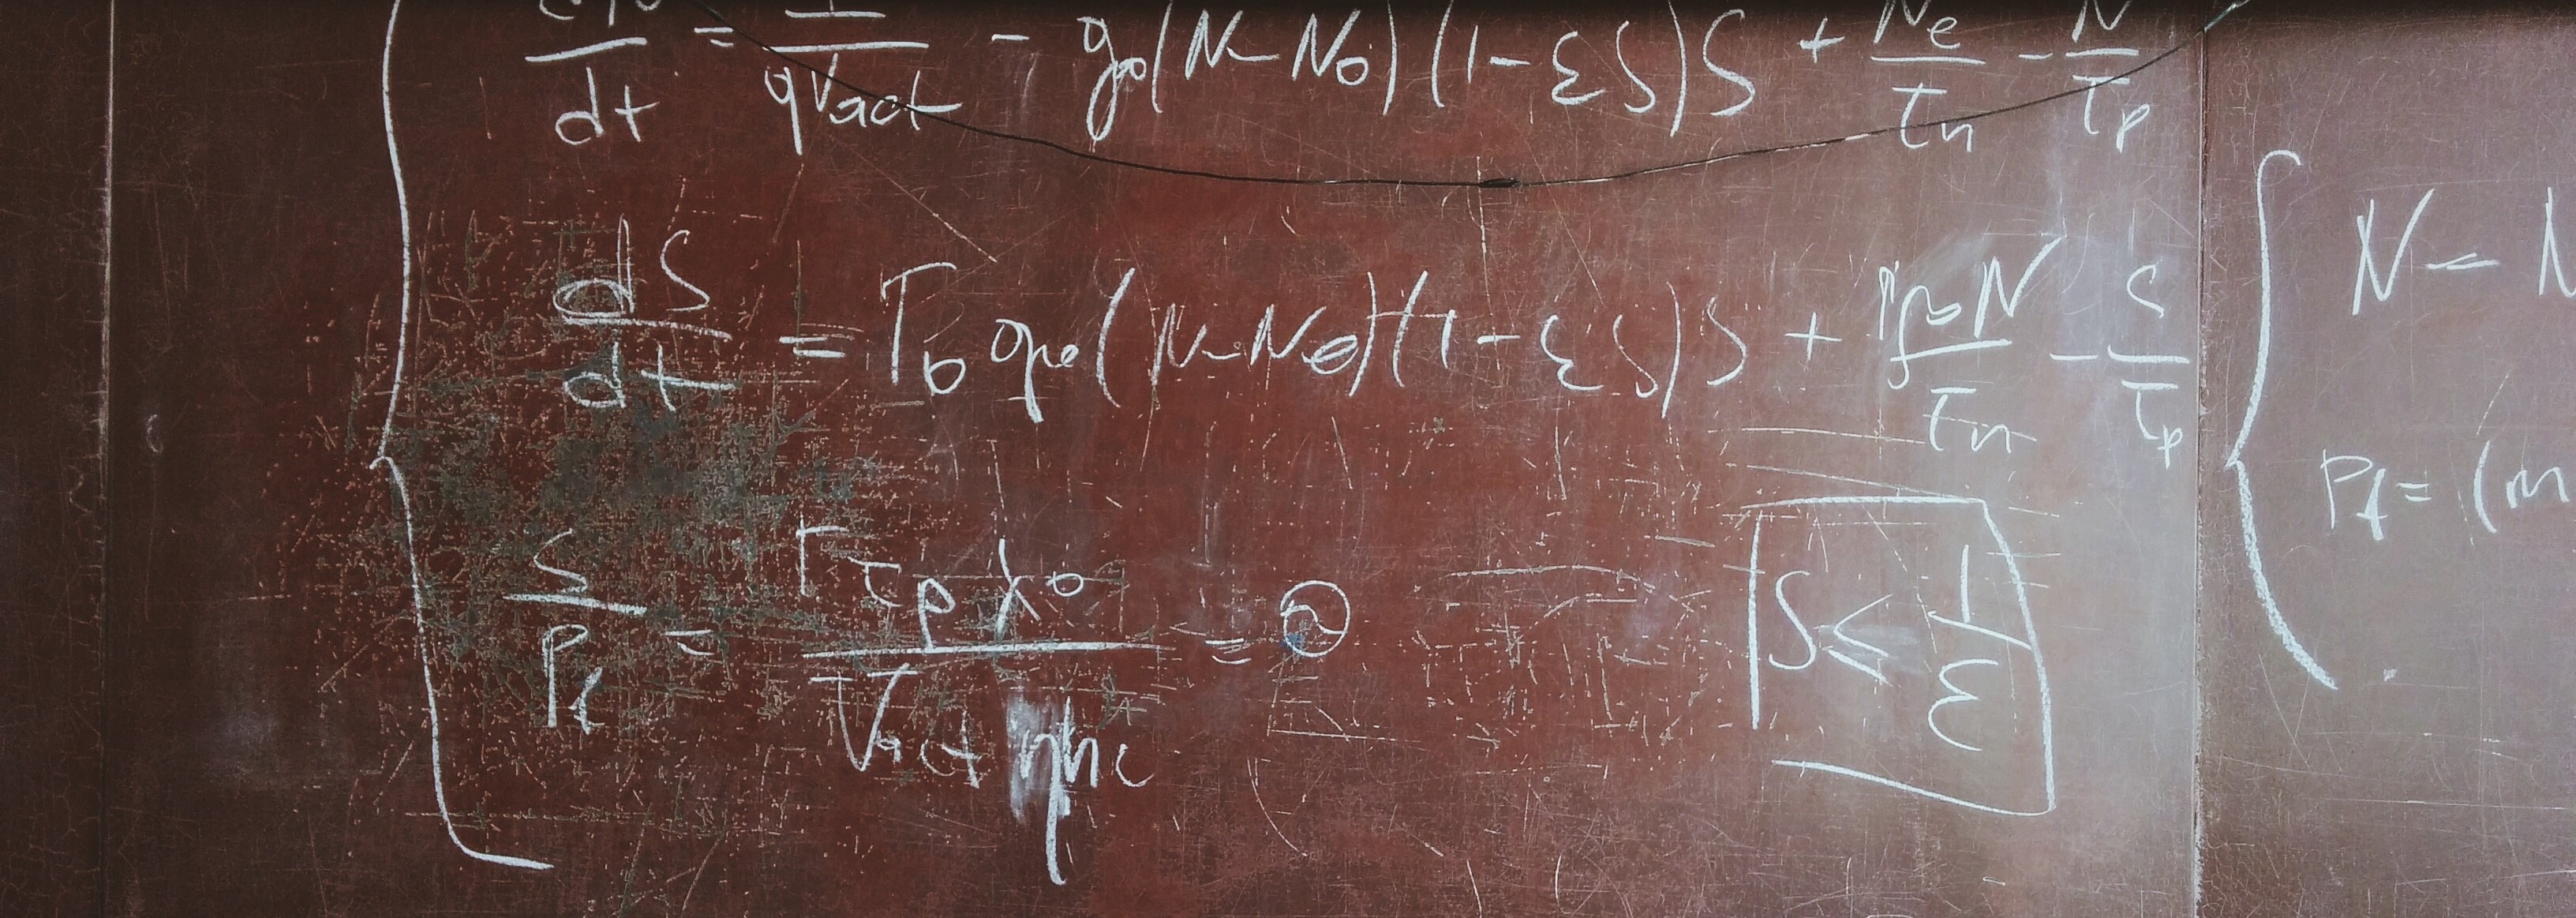 dN/dt = I/qVact - g₀(N-N₀)(1-εS)S + Ne/τn - N/τp
dS/dt = Γ₀g₀(N-N₀)(1-εS)S + N/τn - S/τp
S/Pf = Γτpλ₀/Vactηhc =
S ≤ 1/ε
N - N
Pf = (m